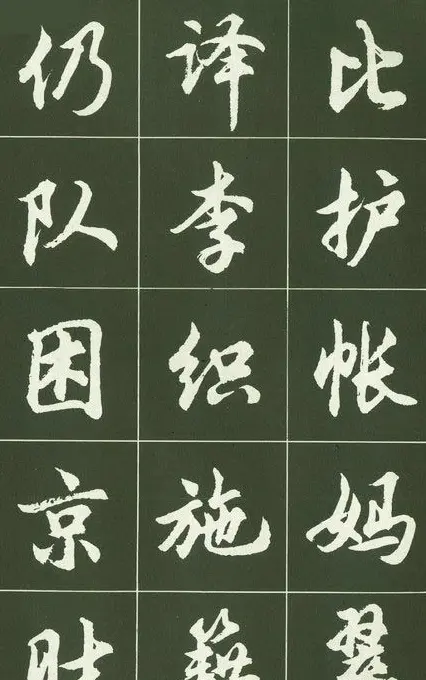 仍译比
队李护
困织帐
京施妈